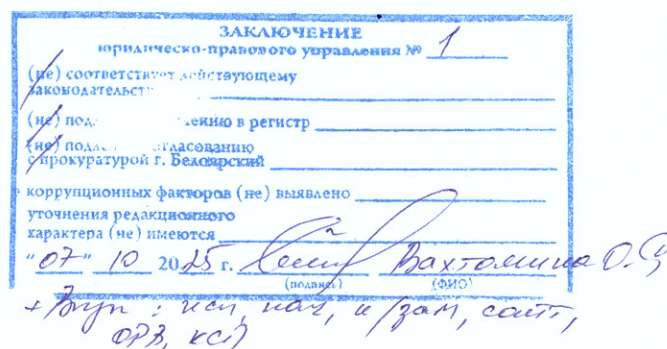 ЗАКЛЮЧЕНИЕ
юридическо-правового управления № 1
(не) соответствует действующему
законодательст
(не) под ению в регистр
(не) подл огласованию
с прокуратурой г. Белоярский
коррупционных факторов (не) выявлено
уточнения редакционного
характера (не) имеются
"07" 10 2025 г. Вахтомина О.
(подпись) (ФИО)